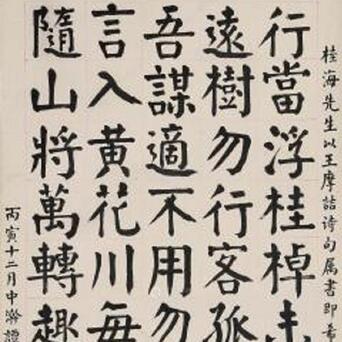 桂海先生以王摩詰诗句属書即希
行當浮桂棹未
遠樹勿行客孤
吾謀適不用勿
言入黄花川每
隨山將萬轉趣
丙寅十二月中澣譚